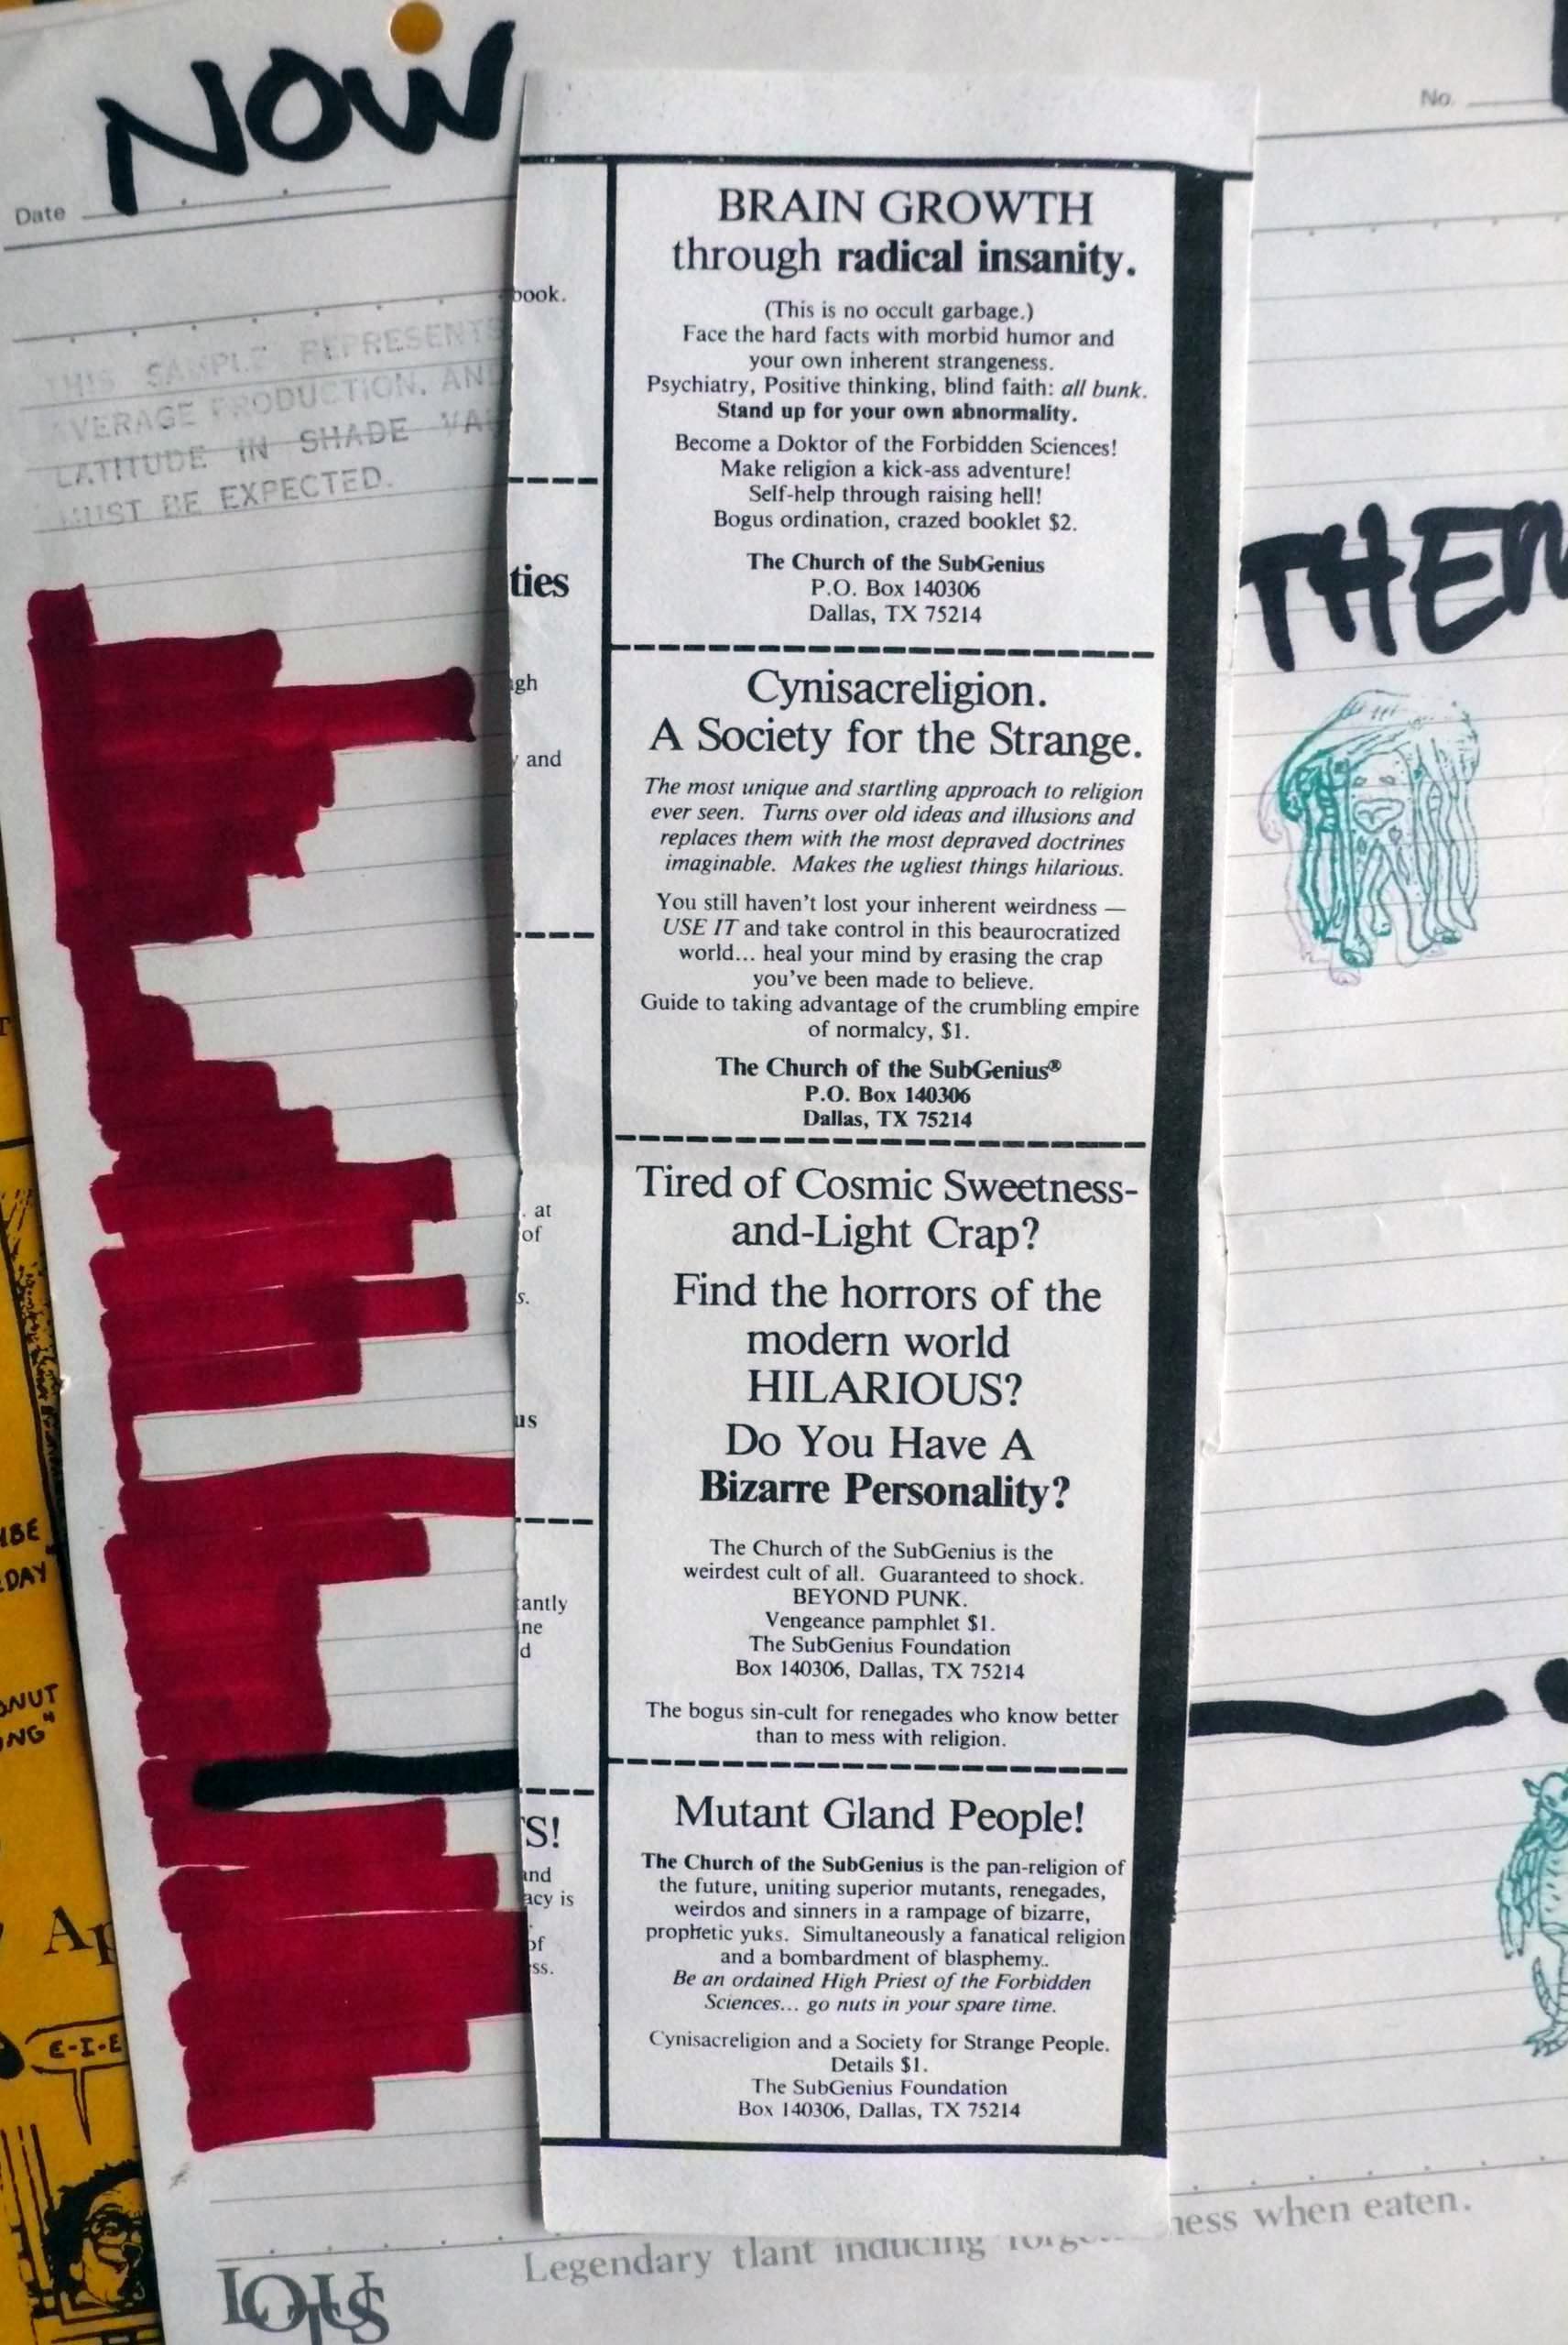 NOW
Date
No.
THIS SAMPLE REPRESENTS
AVERAGE PRODUCTION, AND
LATITUDE IN SHADE VA
MUST BE EXPECTED.
book.
ties
gh
and
at
of
s.
us
antly
ne
d
S!
and
acy is
of
ss.
BRAIN GROWTH
through radical insanity.
(This is no occult garbage.)
Face the hard facts with morbid humor and
your own inherent strangeness.
Psychiatry, Positive thinking, blind faith: all bunk.
Stand up for your own abnormality.
Become a Doktor of the Forbidden Sciences!
Make religion a kick-ass adventure!
Self-help through raising hell!
Bogus ordination, crazed booklet $2.
The Church of the SubGenius
P.O. Box 140306
Dallas, TX 75214
Cynisacreligion.
A Society for the Strange.
The most unique and startling approach to religion
ever seen. Turns over old ideas and illusions and
replaces them with the most depraved doctrines
imaginable. Makes the ugliest things hilarious.
You still haven't lost your inherent weirdness —
USE IT and take control in this beaurocratized
world... heal your mind by erasing the crap
you've been made to believe.
Guide to taking advantage of the crumbling empire
of normalcy, $1.
The Church of the SubGenius®
P.O. Box 140306
Dallas, TX 75214
Tired of Cosmic Sweetness-
and-Light Crap?
Find the horrors of the
modern world
HILARIOUS?
Do You Have A
Bizarre Personality?
The Church of the SubGenius is the
weirdest cult of all. Guaranteed to shock.
BEYOND PUNK.
Vengeance pamphlet $1.
The SubGenius Foundation
Box 140306, Dallas, TX 75214
The bogus sin-cult for renegades who know better
than to mess with religion.
Mutant Gland People!
The Church of the SubGenius is the pan-religion of
the future, uniting superior mutants, renegades,
weirdos and sinners in a rampage of bizarre,
prophetic yuks. Simultaneously a fanatical religion
and a bombardment of blasphemy..
Be an ordained High Priest of the Forbidden
Sciences... go nuts in your spare time.
Cynisacreligion and a Society for Strange People.
Details $1.
The SubGenius Foundation
Box 140306, Dallas, TX 75214
THEN
IBE
DAY
ONUT
ING"
Ap
E-I-E
Legendary tlant inducing ness when eaten.
LOTUS